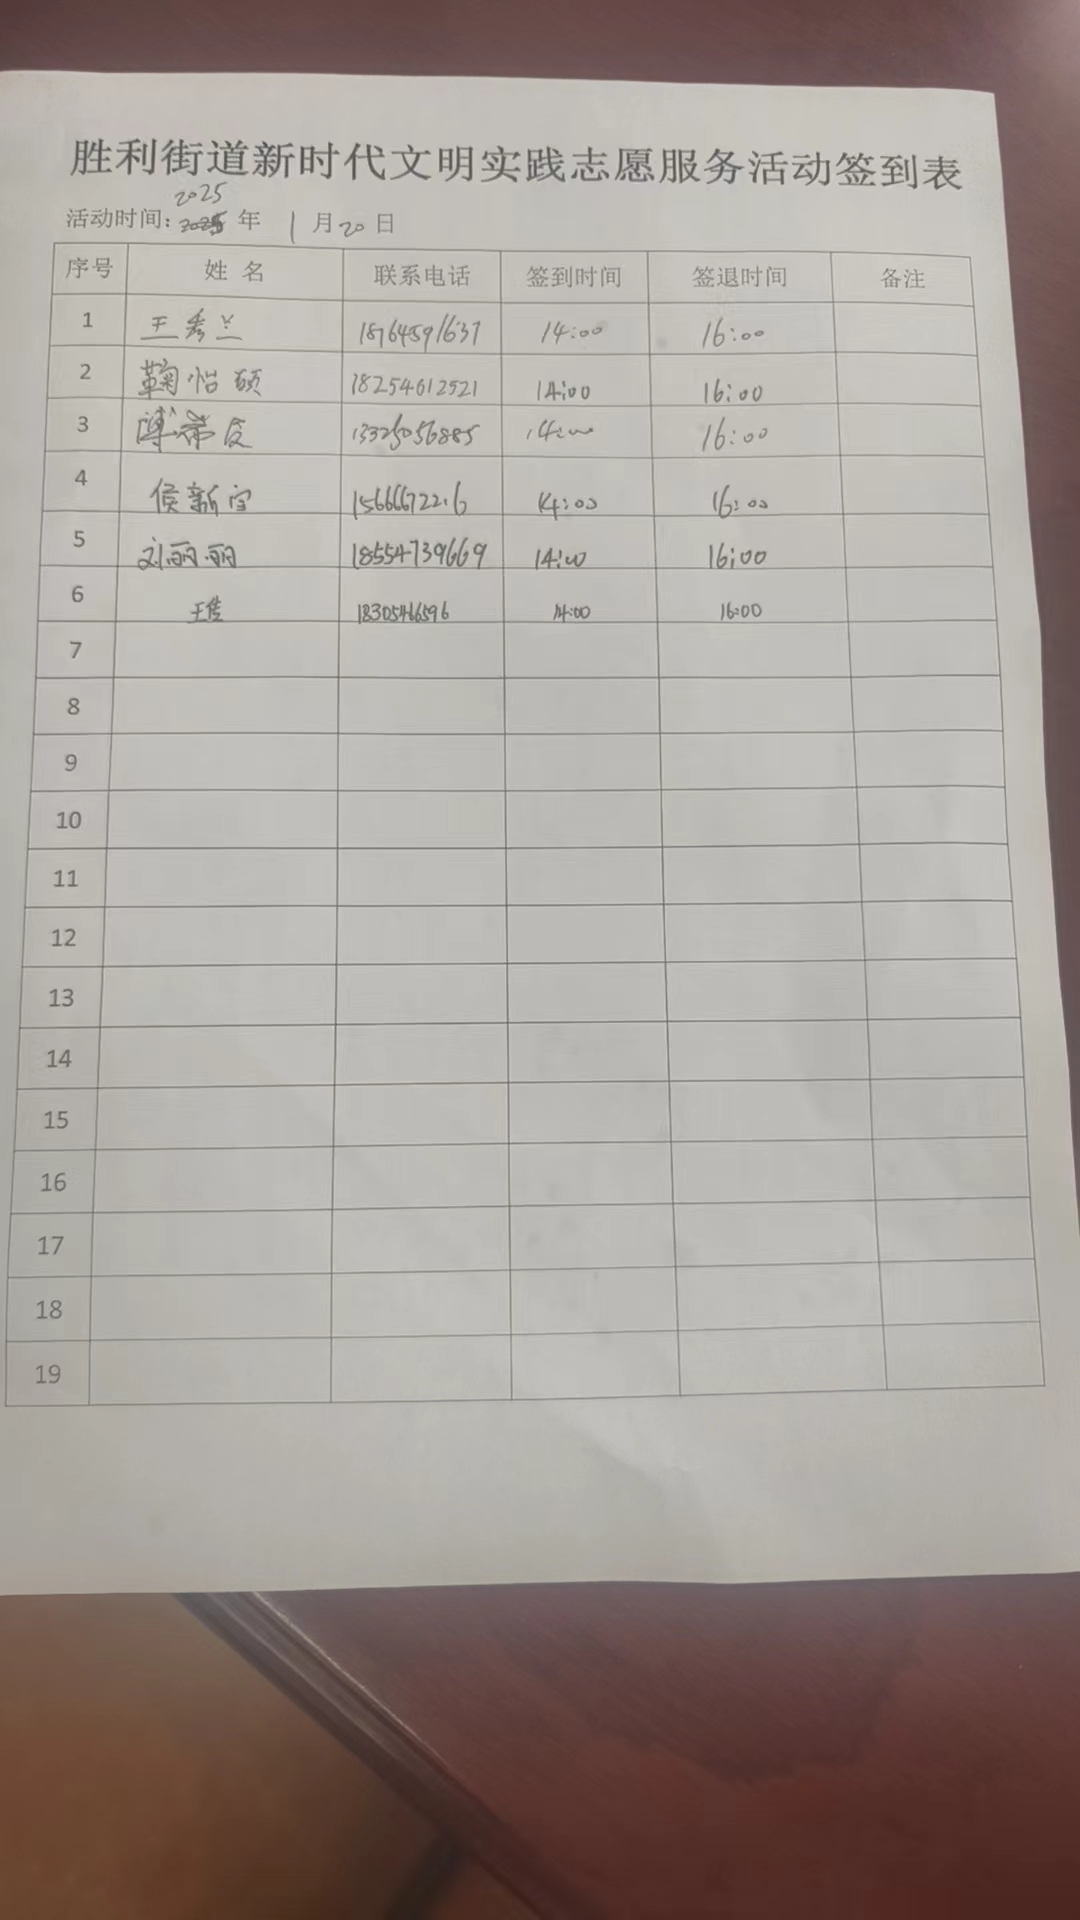 胜利街道新时代文明实践志愿服务活动签到表
2025
活动时间: 年 1 月 20 日
序号 姓 名 联系电话 签到时间 签退时间 备注
1 王秀兰 18764591637 14:00 16:00
2 鞠怡硕 18254612521 14:00 16:00
3 13325056885 14:00 16:00
4 侯新宇 14:00 16:00
5 刘丽丽 18554739669 14:00 16:00
6 18305466596 14:00 16:00
7
8
9
10
11
12
13
14
15
16
17
18
19